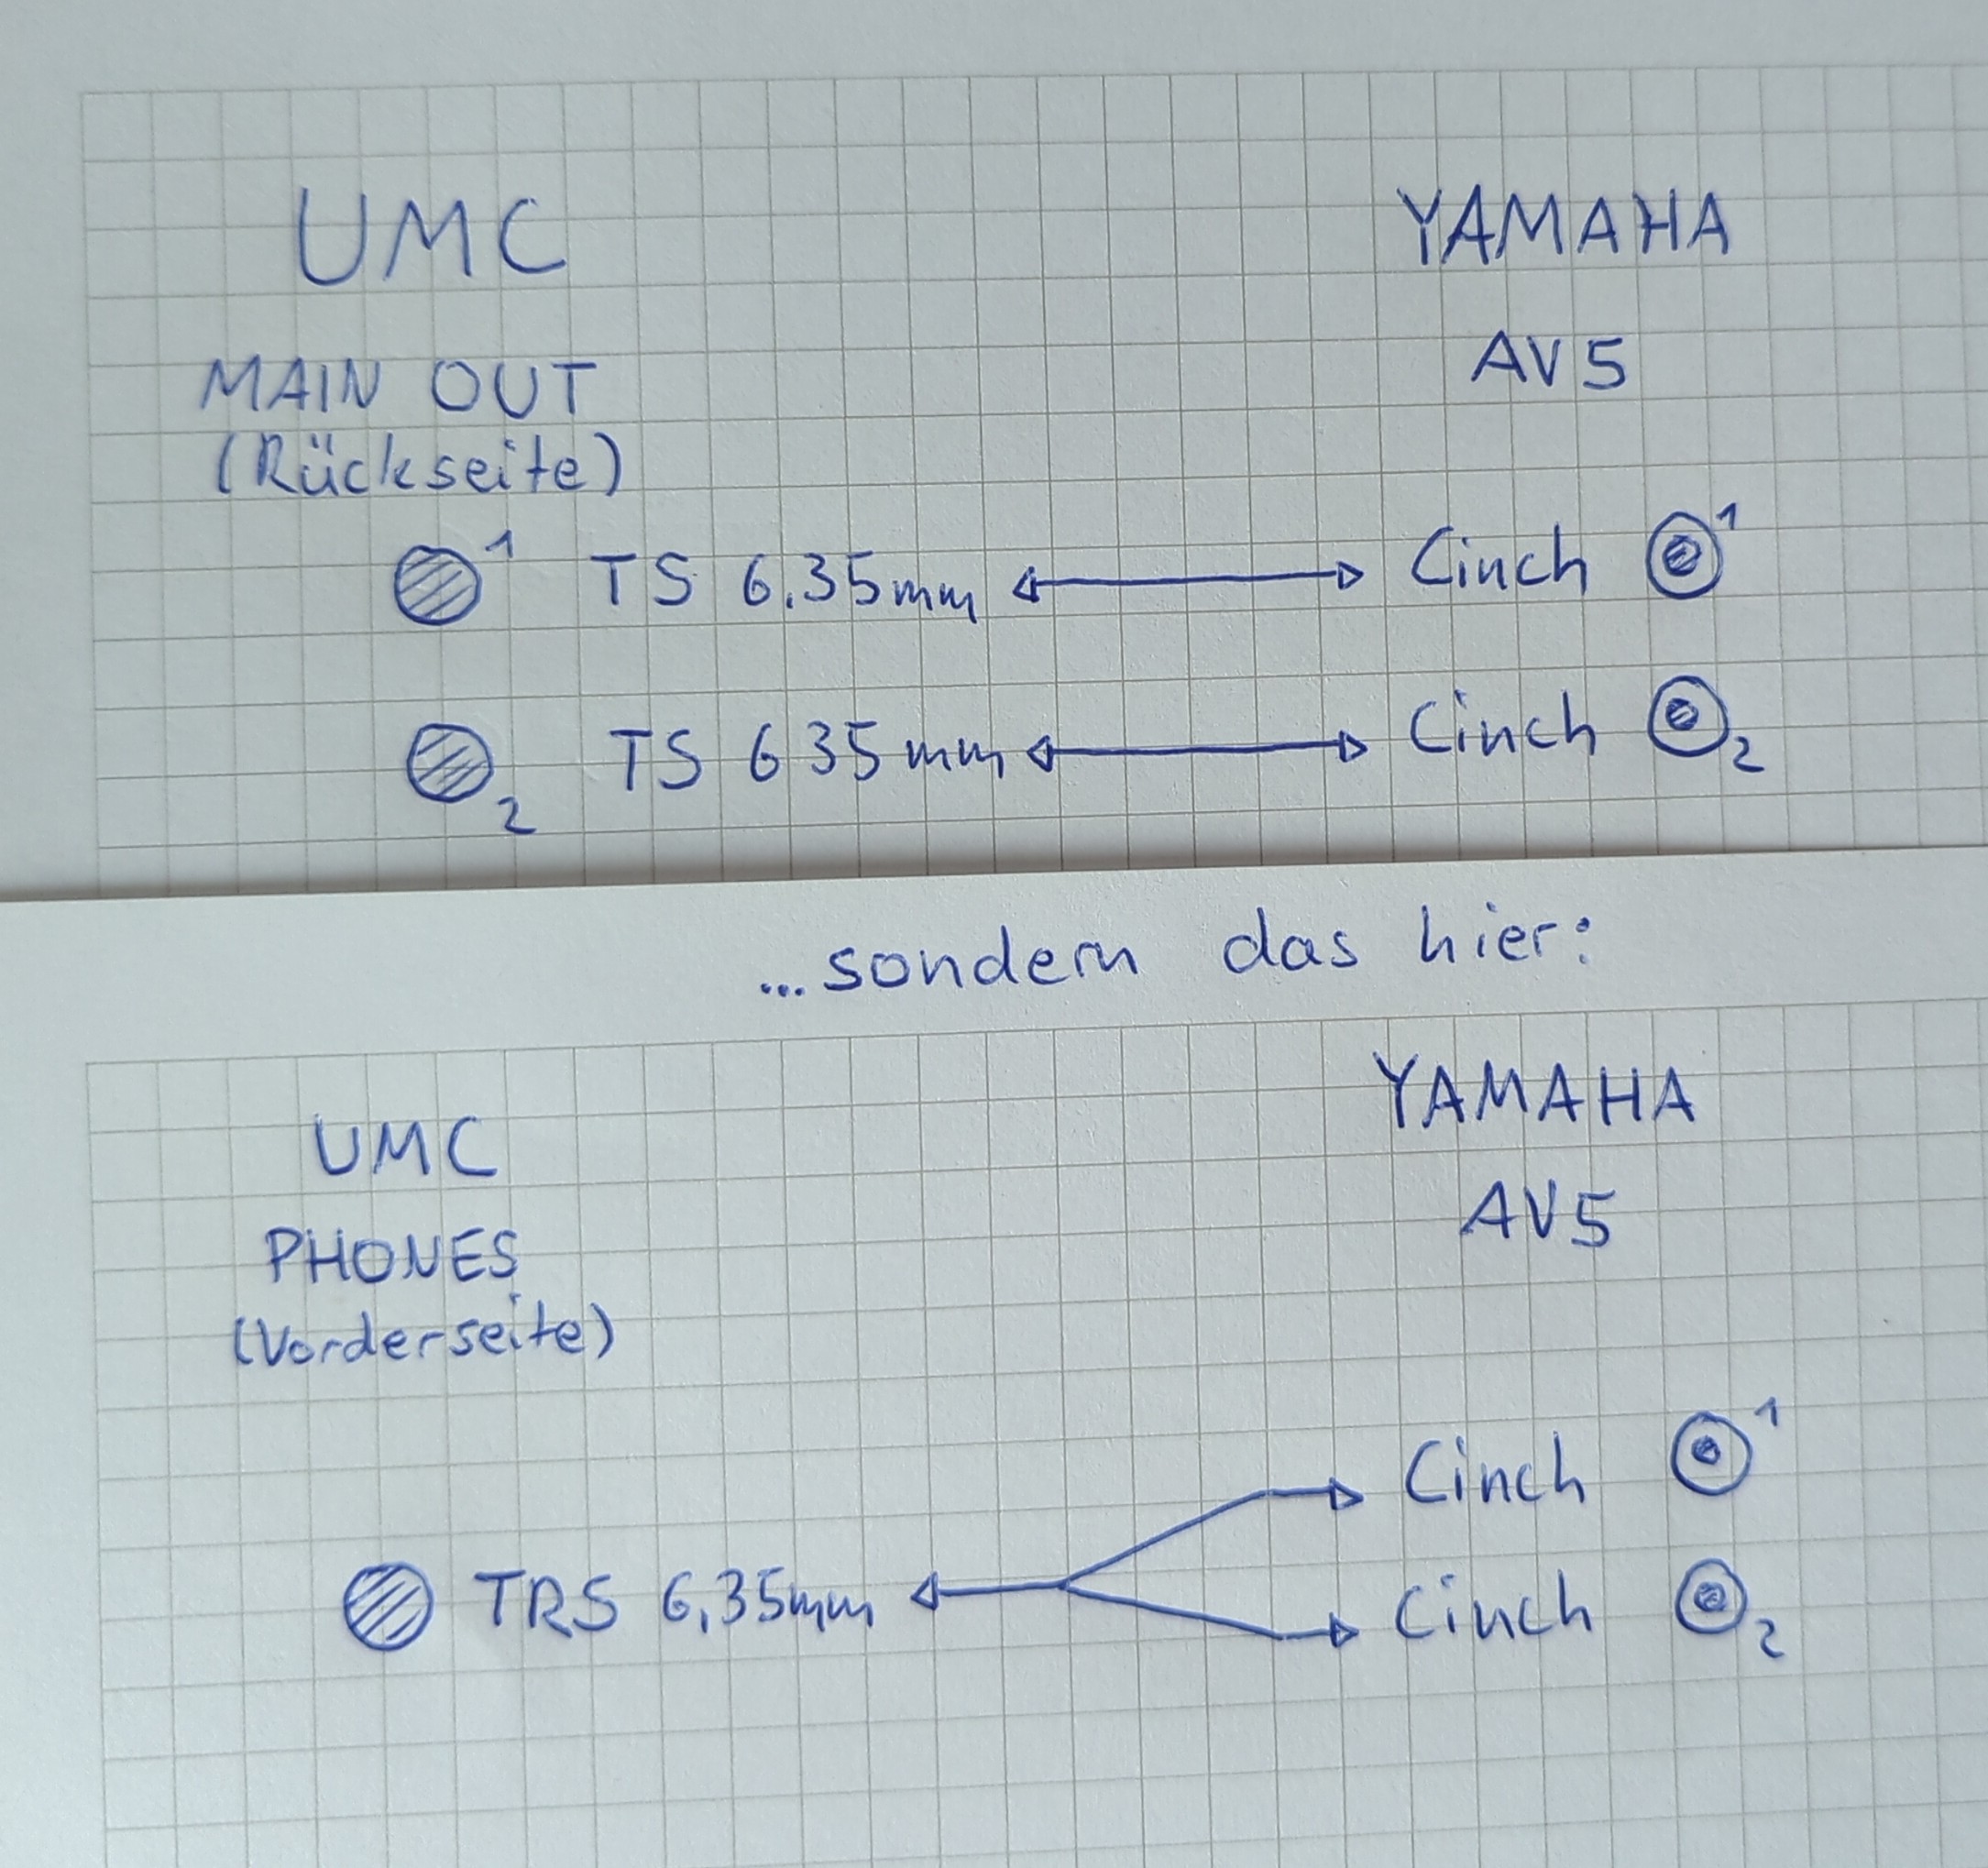 UMC YAMAHA
MAIN OUT AV5
(Rückseite)
1 TS 6.35mm Cinch 1
2 TS 6 35mm Cinch 2
...sondern das hier:
UMC YAMAHA
PHONES AV5
(Vorderseite)
Cinch 1
TRS 6,35mm Cinch 2